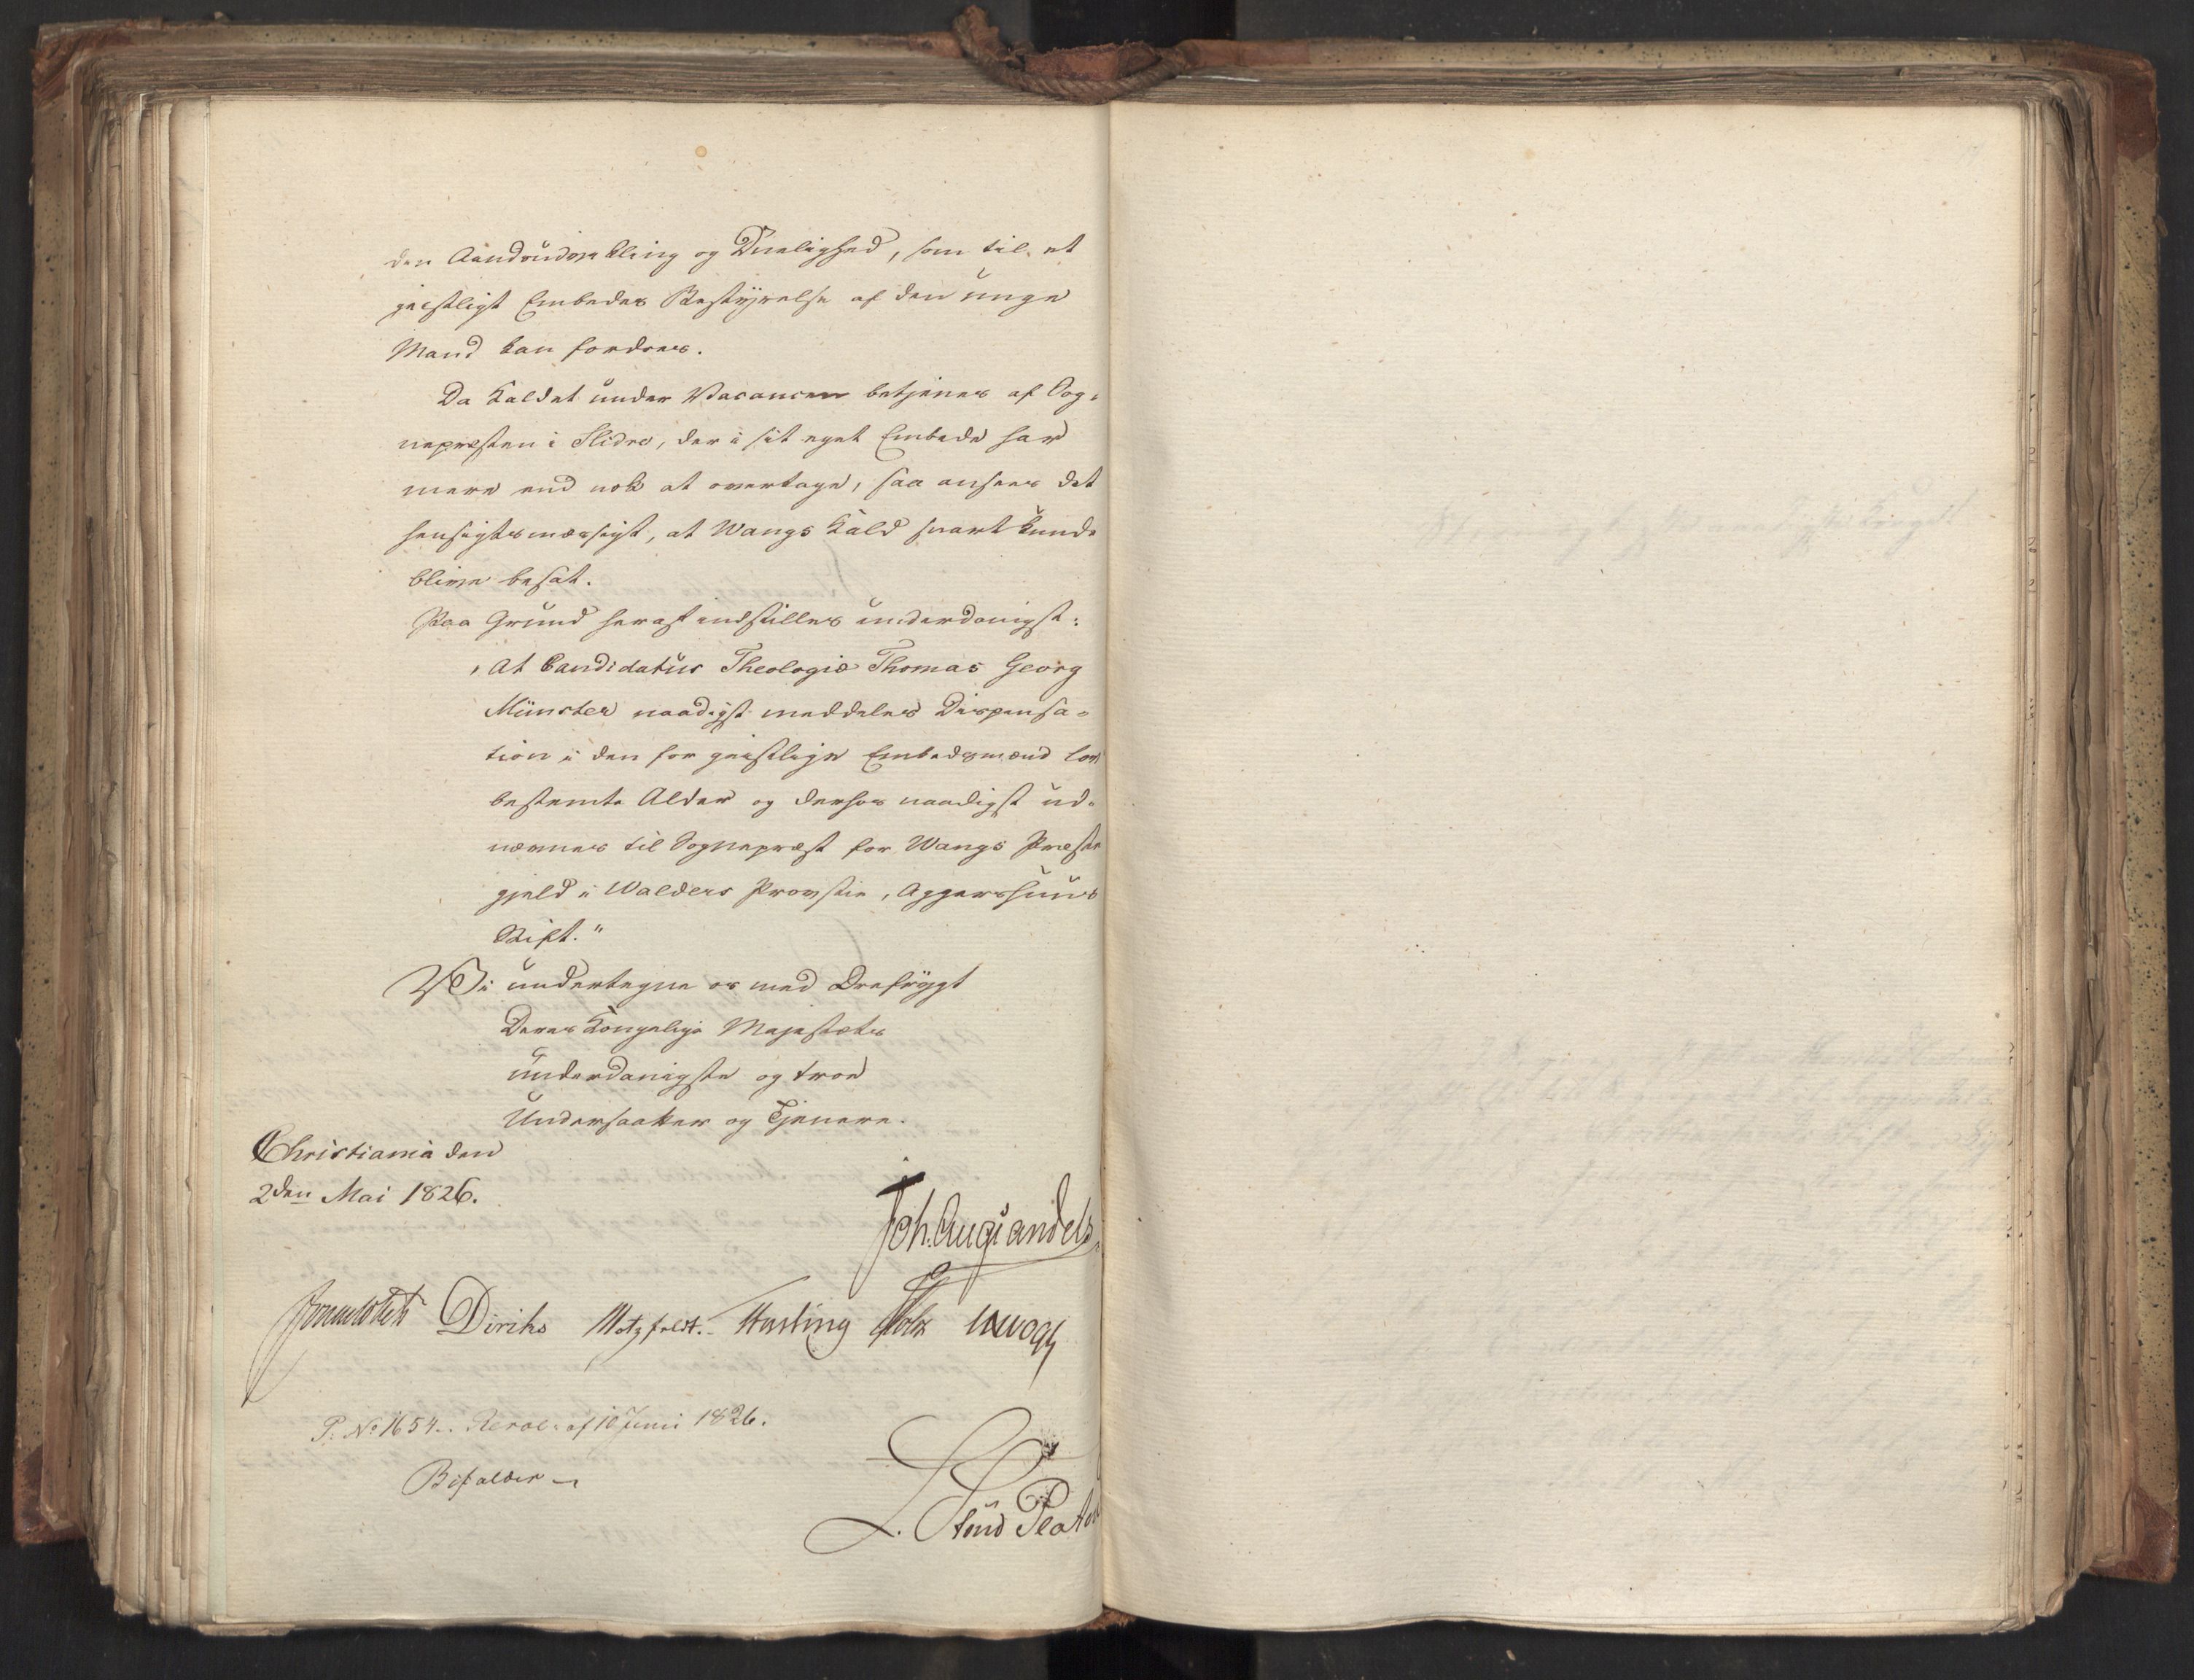 den Aandsudvikling og Duelighed, som til et
geistligt Embedes Bestyrelse af den unge
Mand kan fordres.
Da Kaldet under Vacancen betjenes af Sog-
nepresten i Slidre, der i sit eget Embede har
mere end nok at overtage, saa ansees det
hensigtsmæssigt, at Wangs Kald snart kunde
blive besat.
Paa Grund heraf indstilles underdanigst:
"At Candidatus Theologiæ Thomas Georg
Münster naadigst meddeles Dispensa-
tion i den for geistlige Embedsmænd lov
bestemte Alder og derhos naadigst ud-
nævnes til Sognepræst for Wangs Præste
gjeld i Walders Provstie, Aggershuus
Stift."
Vi undertegne os med Ærefrygt
Deres Kongelige Majestæts
underdanigste og troe
Undersaatter og Tjenere.
Christiania den
2den Mai 1826.
Joh. Aug: Sandels
Sommelskelt Diriks Motzfeldt. Hasting Holst
P: No 1654. Resol: af 10 Juni 1826.
Bifaldes